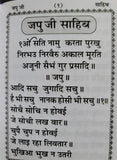 जपु जी (१) साहिब
जपु जी साहिब
१ओं सति नामु करता पुरखु
निरभउ निरवैरु अकाल मूरति
अजूनी सैभं गुर प्रसादि ॥
॥ जपु ॥
आदि सचु जुगादि सचु ॥
है भी सचु नानक होसी भी सचु ॥१॥
सोचै सोचि न होवई
जे सोची लख वार ॥
चुपै चुप न होवई
जे लाइ रहा लिवतार ॥
भुखिआ भुख न उतरी